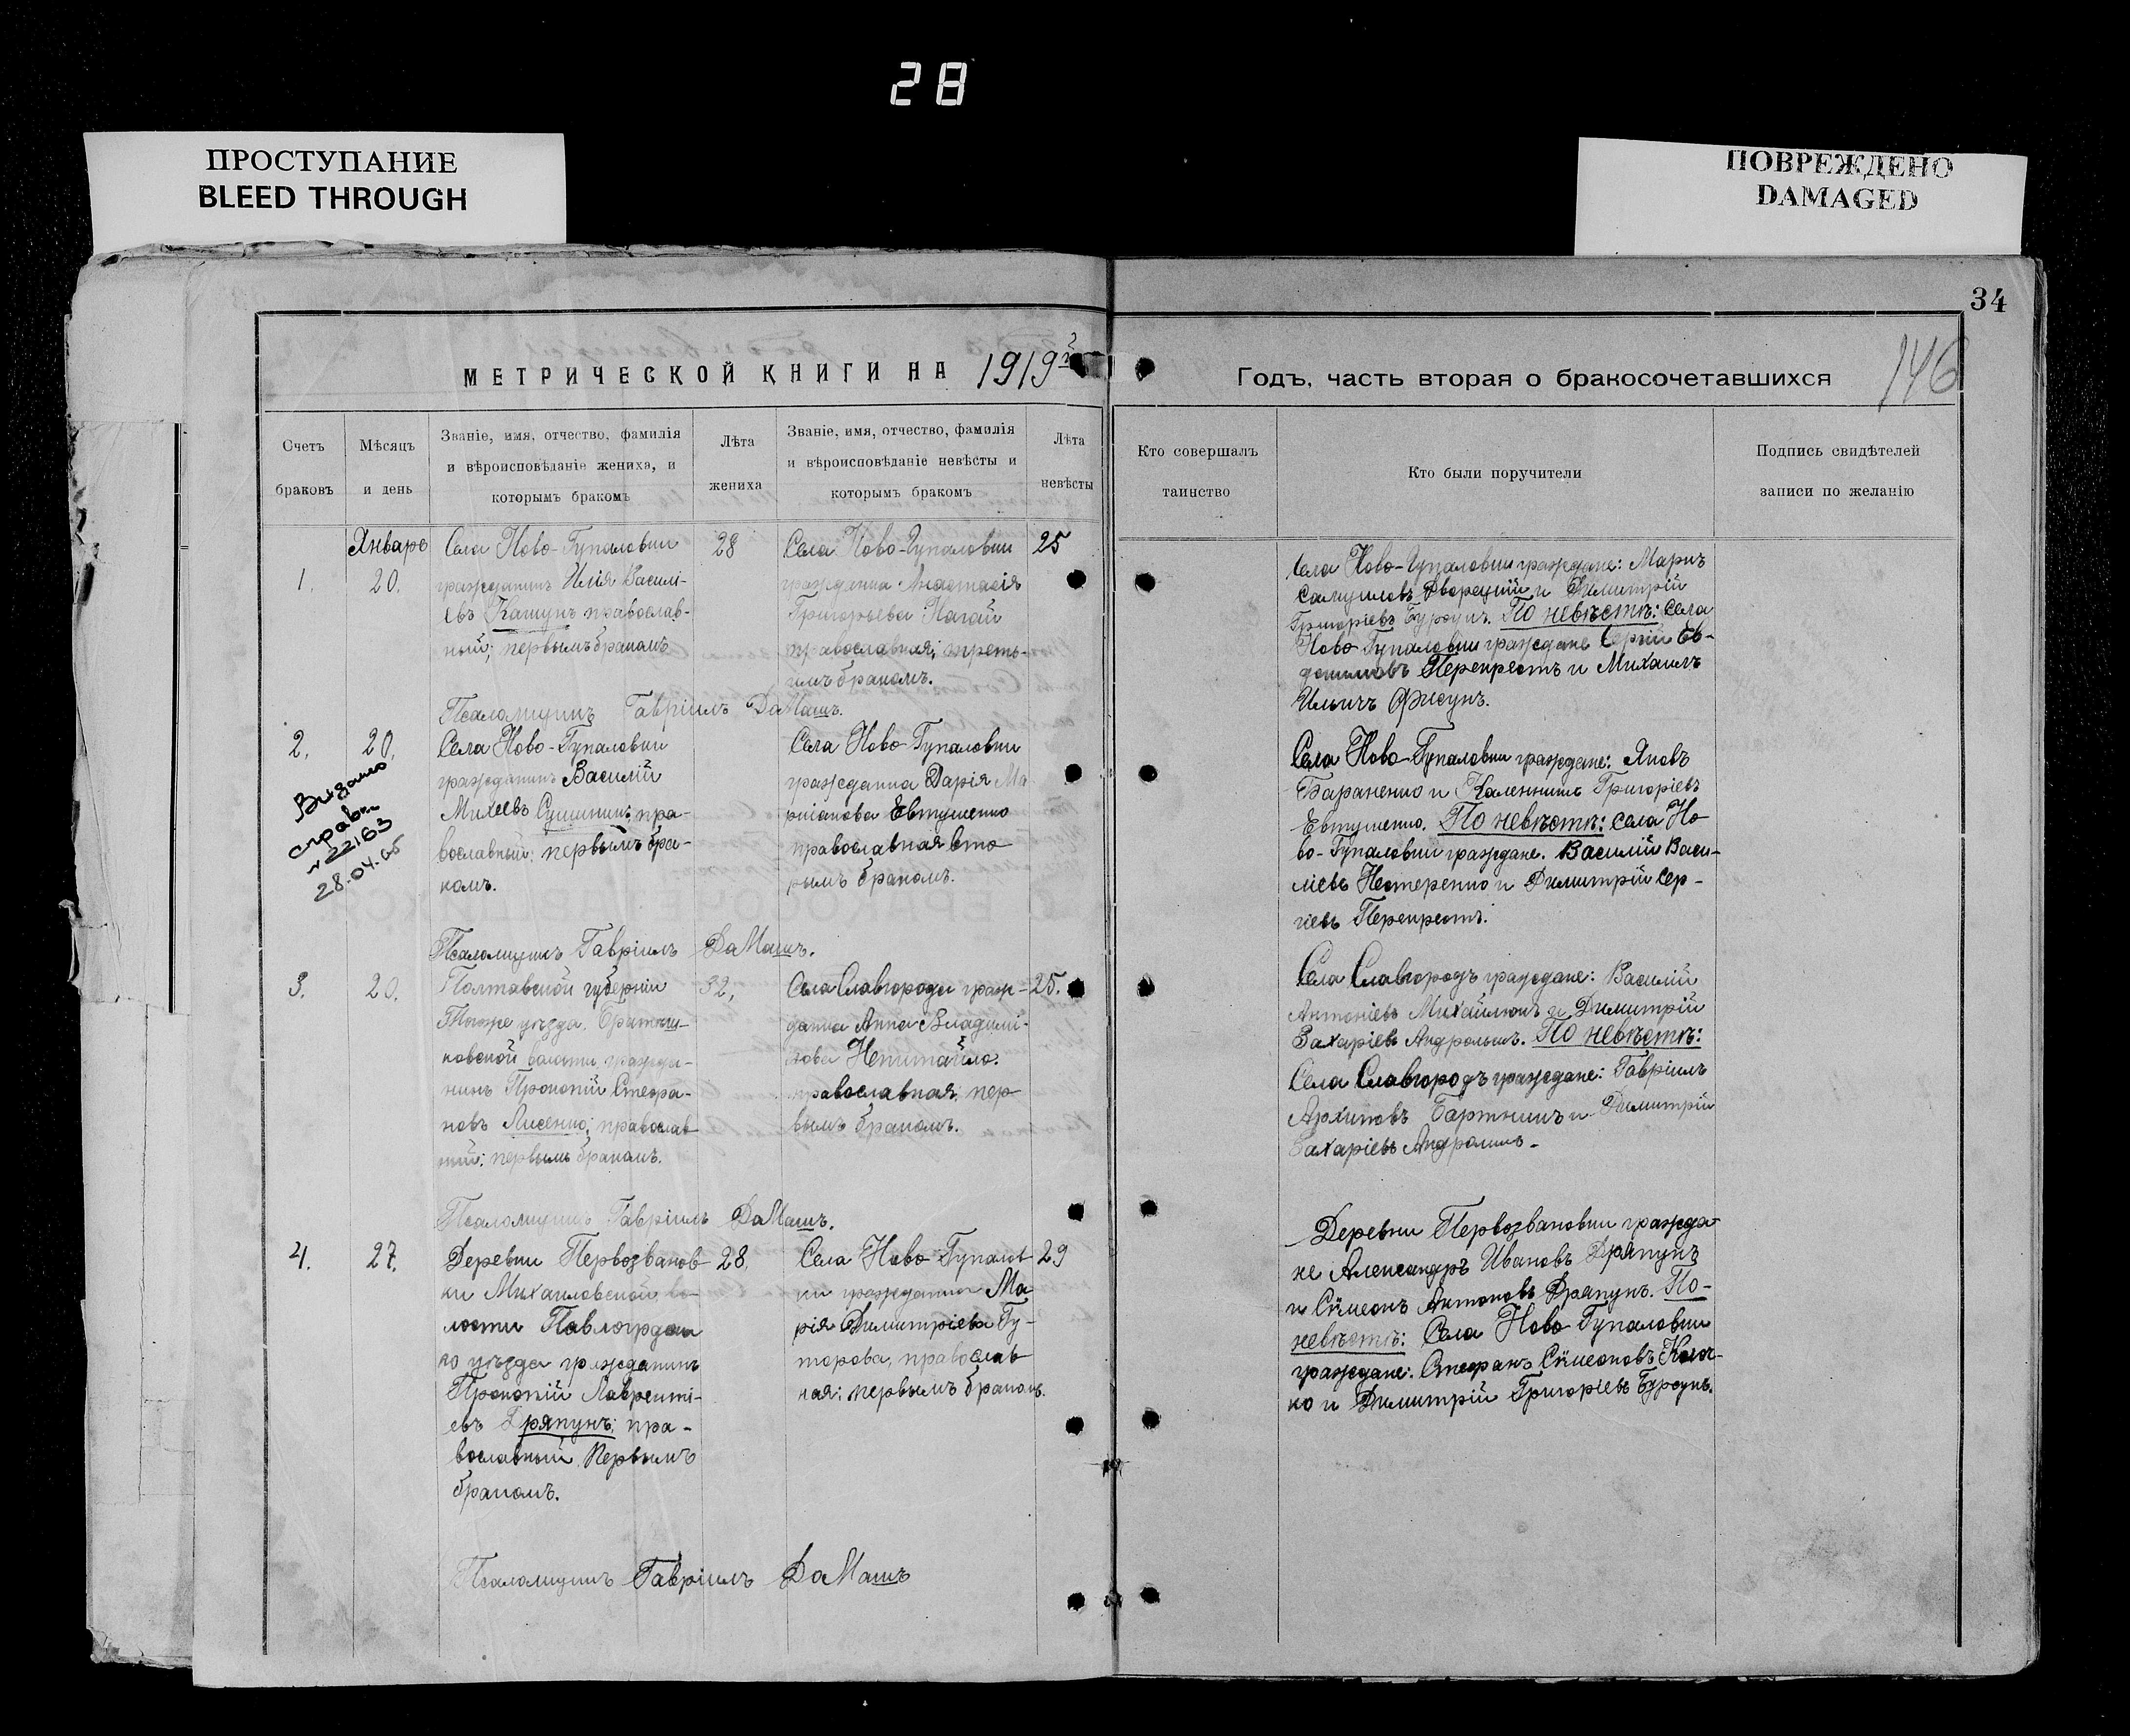 28
ПРОСТУПАНИЕ
BLEED THROUGH
ПОВРЕЖДЕНО
DAMAGED
34
146
МЕТРИЧЕСКОЙ КНИГИ НА 1919й
Годъ, часть вторая о бракосочетавшихся
Счетъ
браковъ
Мѣсяцъ
и день
Званіе, имя, отчество, фамилія
и вѣроисповѣданіе жениха, и
которымъ бракомъ
Лѣта
жениха
Званіе, имя, отчество, фамилія
и вѣроисповѣданіе невѣсты и
которымъ бракомъ
Лѣта
невѣсты
Кто совершалъ
таинство
Кто были поручители
Подпись свидѣтелей
записи по желанію
Январь
1.
20.
Села Ново-Гупаловки
гражданинъ Илія Василі-
евъ Кашунъ православ-
ный; первымъ бракомъ
28
Села Ново-Гупаловки
гражданка Анастасія
Григорьева Нагай
православная; треть-
имъ бракомъ.
25
Села Ново-Гупаловки граждане: Маркъ
Самуиловъ Дворецкій и Димитрій
Григоріевъ Бурсукъ. По невѣстѣ: села
Ново-Гупаловки граждане Сергій Ев-
докимовъ Перекрестъ и Михаилъ
Ильичъ Фисунъ.
Псаломщикъ Гавріилъ ДаМашъ.
2.
20.
Видано
справку
№ 22163
28.04.65
Села Ново-Гупаловки
гражданинъ Василій
Михеевъ Сушининъ; пра-
вославный; первымъ бра-
комъ.
Села Ново-Гупаловки
гражданка Дарія Ма
ркіанова Евтушенко
православная вто
рымъ бракомъ.
Села Ново-Гупаловки граждане: Яковъ
Бараненко и Каленникъ Григоріевъ
Евтушенко. По невѣстѣ: села Но
во-Гупаловки граждане. Василій Васи-
ліевъ Нестеренко и Димитрій Сер-
гіевъ Перекрестъ.
Псаломщикъ Гавріилъ ДаМашъ.
3.
20.
Полтавской губерніи
Тогоже уѣзда.
ковской волости гражда-
нинъ Прокопій Стефа-
новъ Лисенко; православ
ный; первымъ бракомъ.
32,
Села Славгорода граж-
данка Анна Владимі-
рова Непитайло.
православная; пер
вымъ бракомъ.
25.
Села Славгородъ граждане: Василій
Антоніевъ Михайлюкъ и Димитрій
Захаріевъ Андрольикъ. По невѣстѣ:
Села Славгородъ граждане: Гавріилъ
Архиповъ Бартникъ и Димитрій
Захаріевъ
Псаломщикъ Гавріилъ ДаМашъ.
4.
27.
Деревни Первозванов
ки Михаиловской во-
лости Павлоградска
го уѣзда гражданинъ
Прокопій Лавренті-
евъ Дряпунъ; пра-
вославный Первымъ
бракомъ.
28.
Села Ново-Гупалов
ки гражданка Ма
рія Димитріева Гу-
торова, православ
ная; первымъ бракомъ.
29
Деревни Первозвановки гражда-
не Александръ Ивановъ Дряпунъ
и Сѵмеонъ Антоновъ Дряпунъ. По-
невѣстѣ: Села Ново Гупаловки
граждане: Стефанъ Сѵмеоновъ
ко и Димитрій Григоріевъ Бурсукъ.
Псаломщикъ Гавріилъ ДаМашъ